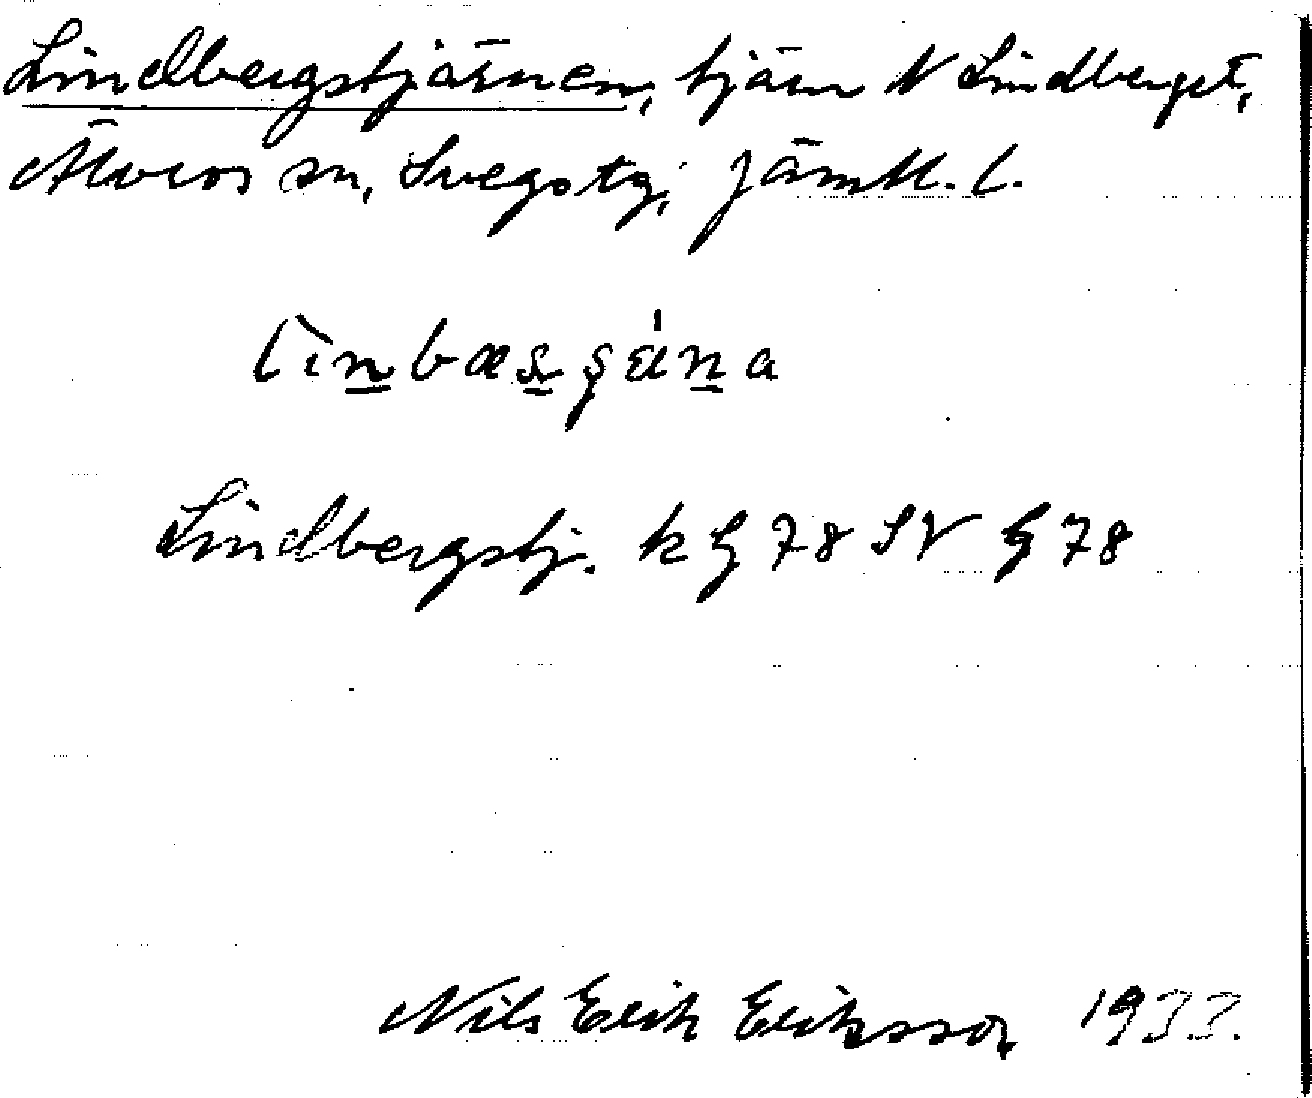 Lindbergstjärnen, tjärn N Lindberget,
Älvros sn, Svegs tg, Jämtl. l.
Lindbergstj. k G 78 SV G 78
Nils Erik Eriksson 1933.